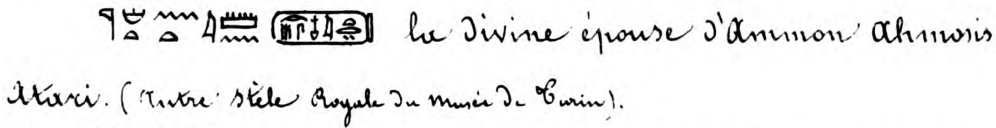 la divine épouse d'Ammon Ahmosis
Atari. (Autre Stèle Royale du musée de Turin).